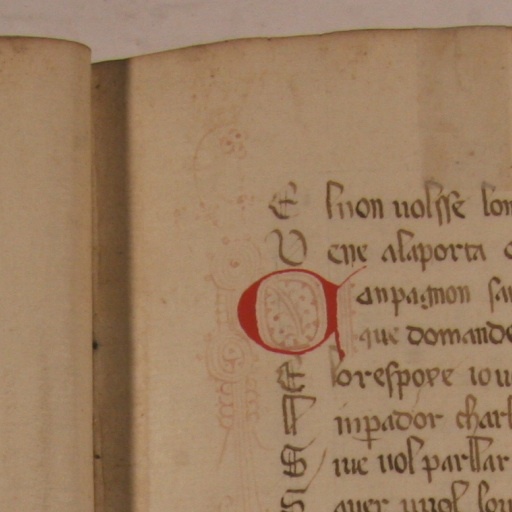 E luon uolsse lon
V ene alaporta
C anpagnon sa
que domande
E lo respoxe iou
I nperador charl
S iue uol parllar
S auer uuol lou